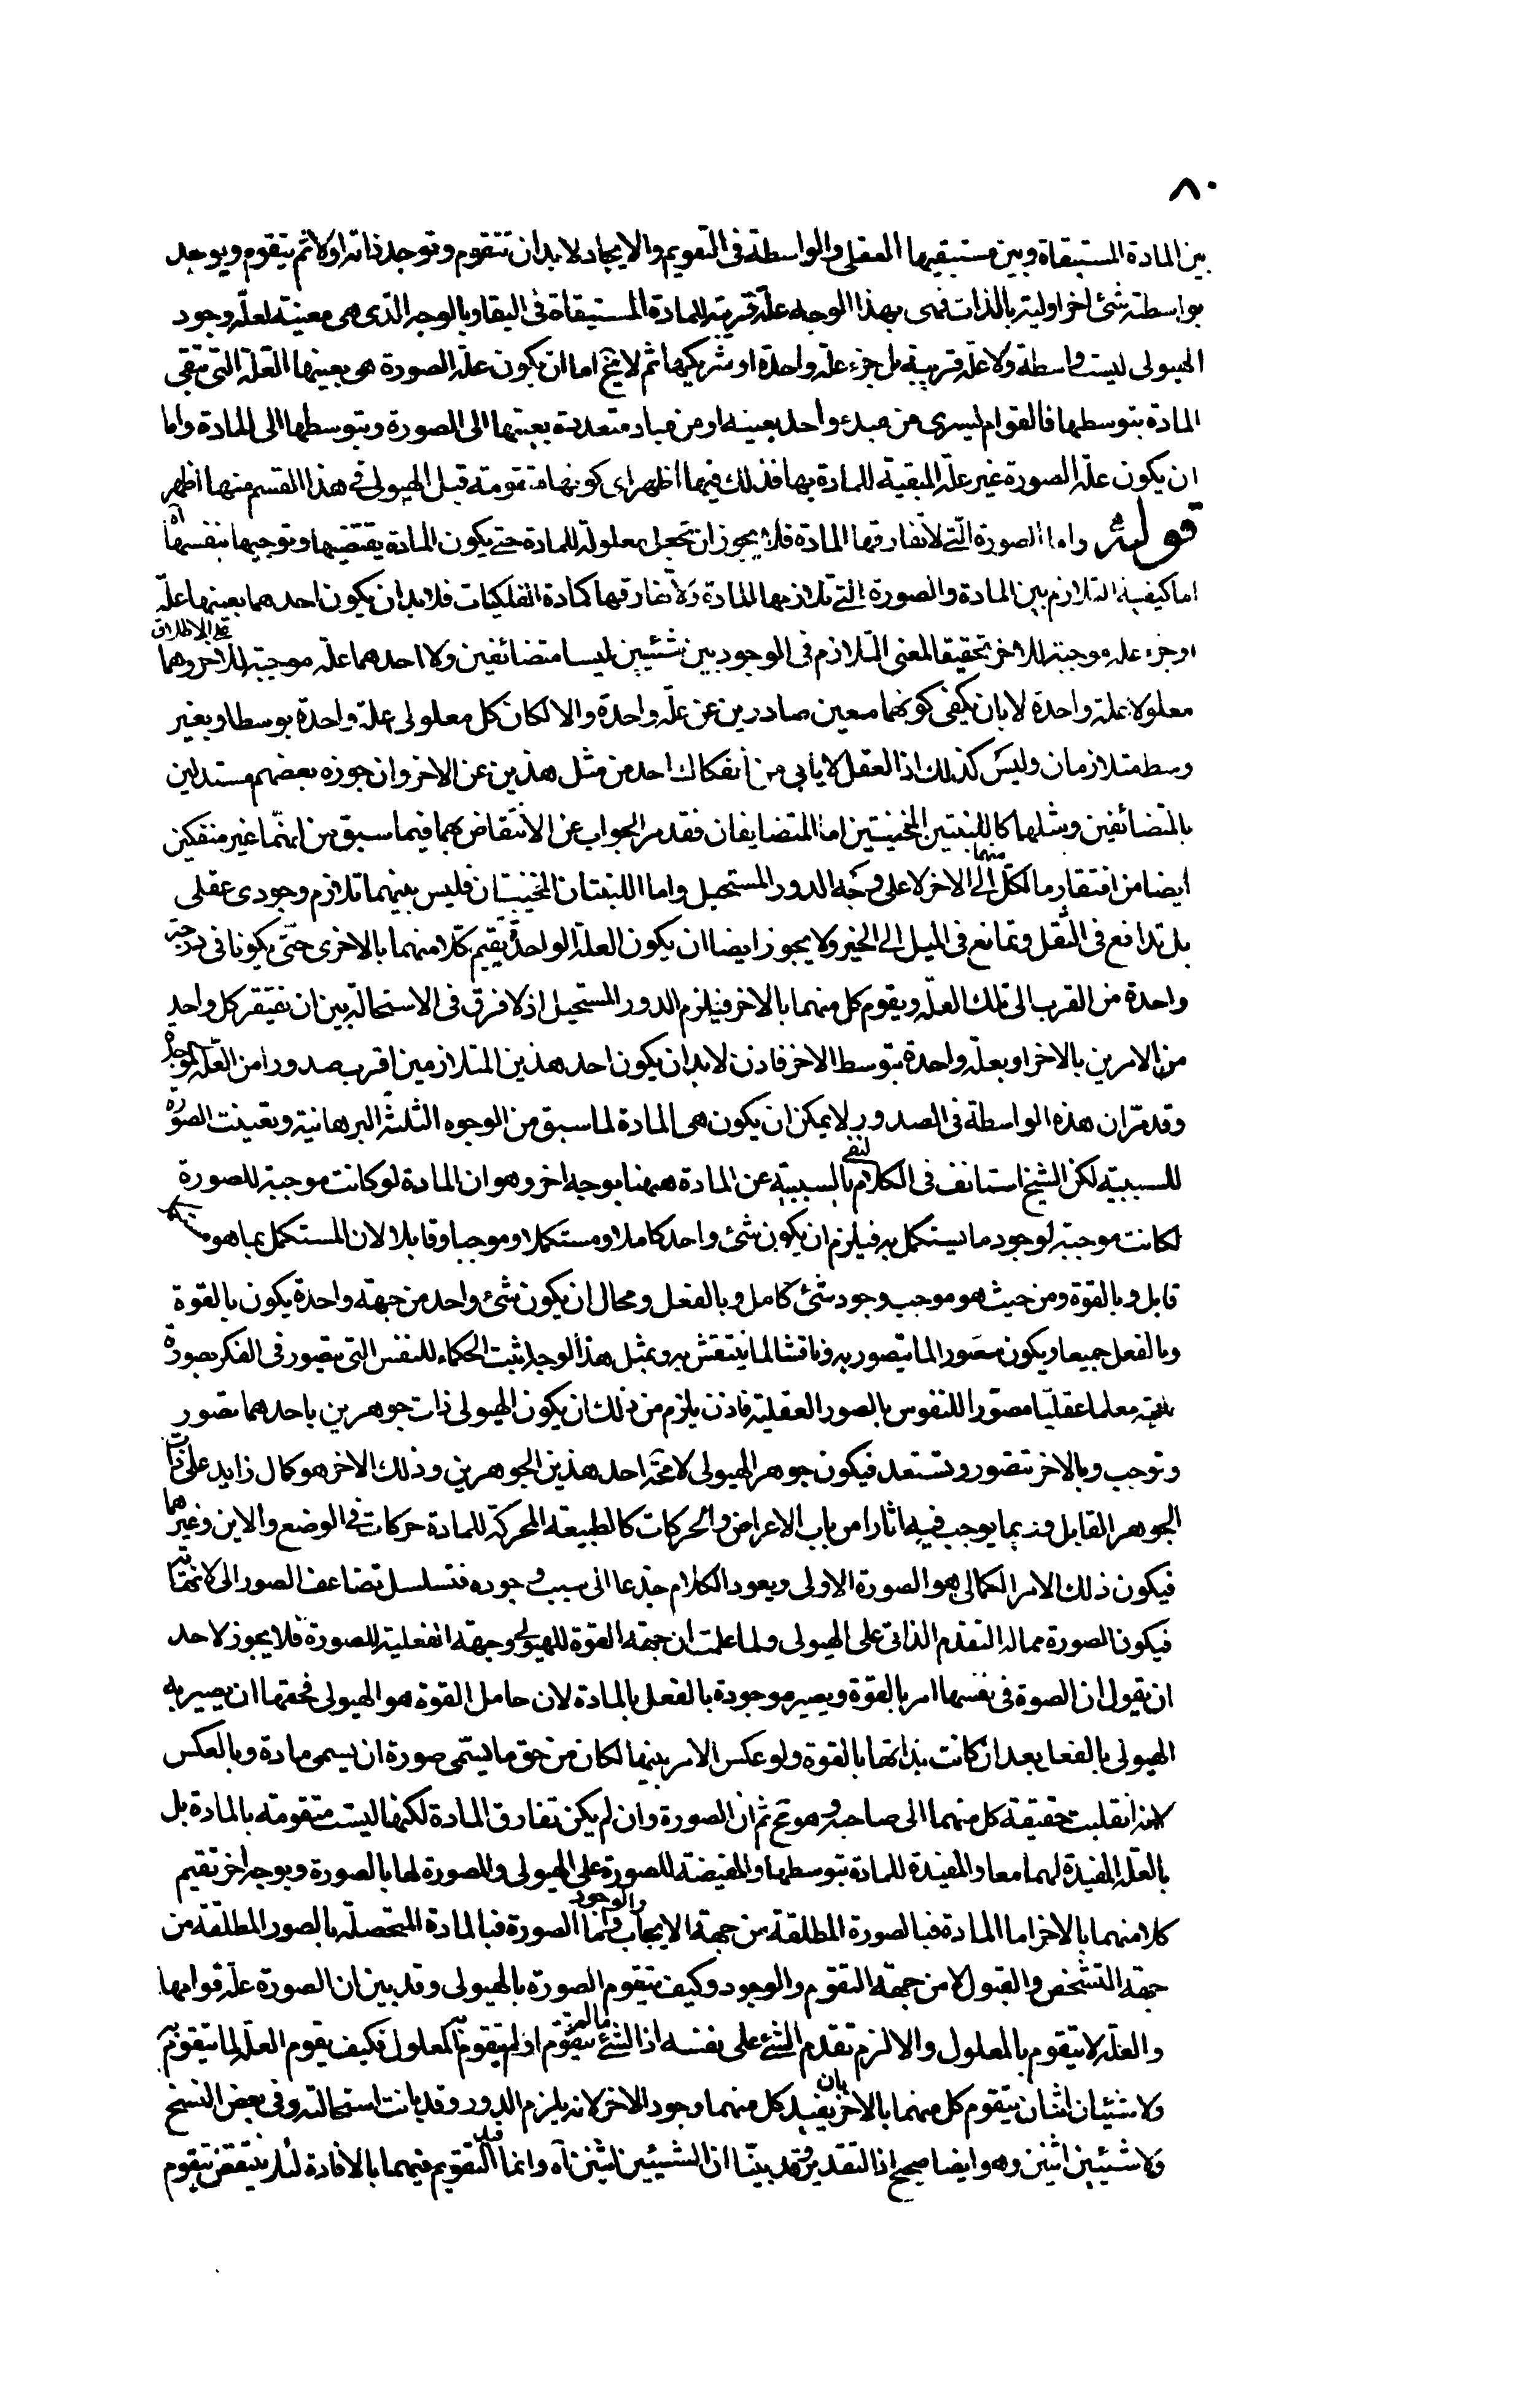 ٨٠
بين المادة المستبقاة وبين مستبقيها العقلى والواسطة فى التقويم والايجاد لا بد ان تتقوم وتوجد ذاته اولا ثم يتقوم ويوجد
بواسطته شئ اخر اولية بالذات فهى بهذا الوجه علة قريبة للمادة المستبقاة فى البقا وبالوجه الذى هى معينة لعلة وجود
الهيولى ليست واسطة ولا علة قريبة بل جزء علة واحدة او شريكها ثم لا يخ اما ان يكون علة الصورة هى بعينها العلة التى تبقى
المادة بتوسطها فالقوام ليسرى من مبدء واحد بعينه او من مباد متعددة بعينها الى الصورة وبتوسطها الى المادة واما
ان يكون علة الصورة غير علة المبقية للمادة بها فذلك فيها اظهر اى كونها متقومة قبل الهيولى فى هذا القسم منها اظهر
قوله واما الصورة التى لا تفارقها المادة فلا يجوز ان تجعل معلولة للمادة حتى يكون المادة يقتضيها وتوجبها بنفسها آه
اما كيفية التلازم بين المادة والصورة التى تلازمها المادة ولا تفارقها كمادة الفلكيات فلا بد ان يكون احدهما بعينها علة
او جزء علة موجبة للاخر تحقيقا لمعنى التلازم فى الوجود بين شيئين ليسا متضائفين ولا احدهما علة موجبة للاخر على الاطلاق وهما
معلولا علة واحدة لا بان يكفى كونهما معين صادرين عن علة واحدة والا لكان كل معلولى علة واحدة بوسط او بغير
وسط متلازمان وليس كذلك اذ العقل لا يابى من انفكاك احد من مثل هذين عن الاخر وان جوزه بعضهم مستدلين
بالمتضائفين ومثلها كاللبنتين المنحنيتين اما المتضايفان فقد مر الجواب عن الانتقاض بهما فيما سبق من انهما غير منفكين
ايضا من افتقار ما لكل منهما الى الاخر لا على وجه الدور المستحيل واما اللبنتان المنحنيتان فليس بينهما تلازم وجودى عقلى
بل تدافع فى الثقل وتمانع فى الميل الى الحيز ولا يجوز ايضا ان يكون العلة الواحدة يقيم كلا منهما بالاخرى حتى يكونا فى درجة
واحدة من القرب الى تلك العلة ويقوم كل منهما بالاخر فيلزم الدور المستحيل اذ لا فرق فى الاستحالة بين ان يفتقر كل واحد
من الامرين بالاخر او بعلة واحدة بتوسط الاخر فاذن لا بد ان يكون احد هذين المتلازمين اقرب صدورا من العلة الموجدة
وقد مر ان هذه الواسطة فى الصدور لا يمكن ان يكون هى المادة لما سبق من الوجوه الثلثة البرهانية وتعينت الصورة
للسببية لكن الشيخ استانف فى الكلام لنفى السببية عن المادة ههنا بوجه اخر وهو ان المادة لو كانت موجبة للصورة
لكانت موجبة لوجود ما يستكمل به فيلزم ان يكون شئ واحد كاملا ومستكملا وموجبا وقابلا لان المستكمل بما هو مستكمل
قابل وبالقوة ومن حيث هو موجب وجود شئ كامل وبالفعل ومحال ان يكون شئ واحد من جهة واحدة يكون بالقوة
وبالفعل جميعا ويكون مصورا لما يتصور به وناقشا لما ينتقش به وبمثل هذا الوجه اثبت الحكماء للنفس التى يتصور فى الفكر بصورة
معلما عقليا مصورا للنفوس بالصور العقلية فاذن يلزم من ذلك ان يكون الهيولى ذات جوهرين باحدهما تصور
وتوجب وبالاخر تتصور وتستعد فيكون جوهر الهيولى لا محة احد هذين الجوهرين وذلك الاخر هو كمال زايد على ذات
الجوهر القابل وبما يوجب فيه اثارا من باب الاعراض والحركات كالطبيعة المحركة للمادة حركات فى الوضع والاين وغيرهما
فيكون ذلك الامر الكمالى هو الصورة الاولى ويعود الكلام جذعا الى سبب وجوده فتسلسل تضاعف الصور الى لا نهاية
فيكون الصورة مما له التقدم الذاتى على الهيولى ولما علمت ان جهة القوة للهيولى وجهة الفعلية للصورة فلا يجوز لاحد
ان يقول ان الصوة فى نفسها امر بالقوة ويصير موجودة بالفعل بالمادة لان حامل القوة هو الهيولى فحقها ان يصير به
الهيولى بالفعل بعد ان كانت بذاتها بالقوة ولو عكس الامر بينهما لكان من حق ما يسمى صورة ان يسمى مادة وبالعكس
لانه انقلبت حقيقة كل منهما الى صاحبه وهو مح ثم ان الصورة وان لم يكن تفارق المادة لكنها ليست متقومة بالمادة بل
بالعلة المفيدة لهما معا والمفيدة للمادة بتوسطها والمفيضة للصورة على الهيولى والمصورة لها بالصورة وبوجه اخر تقيم
كلا منهما بالاخر اما المادة فبالصورة المطلقة من جهة الايجاب والوجود واما الصورة فبالمادة المتحصلة بالصور المطلقة من
جهة التشخص والقبول لا من جهة التقوم والوجود وكيف يتقوم الصورة بالهيولى وقد بين ان الصورة علة قوامها
والعلة لا يتقوم بالمعلول والا لزم تقدم الشئ على نفسه اذ الشئ ما لم يتقوم لم يتقوم به المعلول فكيف يقوم العلة لما يتقوم به
ولا شيئان اثنان يتقوم كل منهما بالاخر بان يفيد كل منهما وجود الاخر لانه يلزم الدور وقد بانت استحالته وفى بعض النسخ
ولا شيئين اثنين وهو ايضا صحيح اذ التقدير وقد بينا ان الشيئين اثنين آه وانما قيد التقويم فيهما بالافادة لئلا ينتقض بتقوم